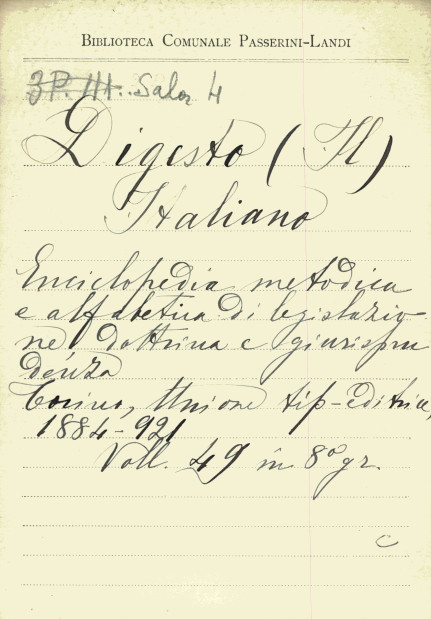 BIBLIOTECA COMUNALE PASSERINI-LANDI
3P. III. Salon 4
Digesto (Il)
Italiano
Enciclopedia metodica
e alfabetica di legislazio-
ne, dottrina e giurispru
denza
Torino, Unione tip-editrice,
1884-921
Voll. 49 in 8º gr.
C